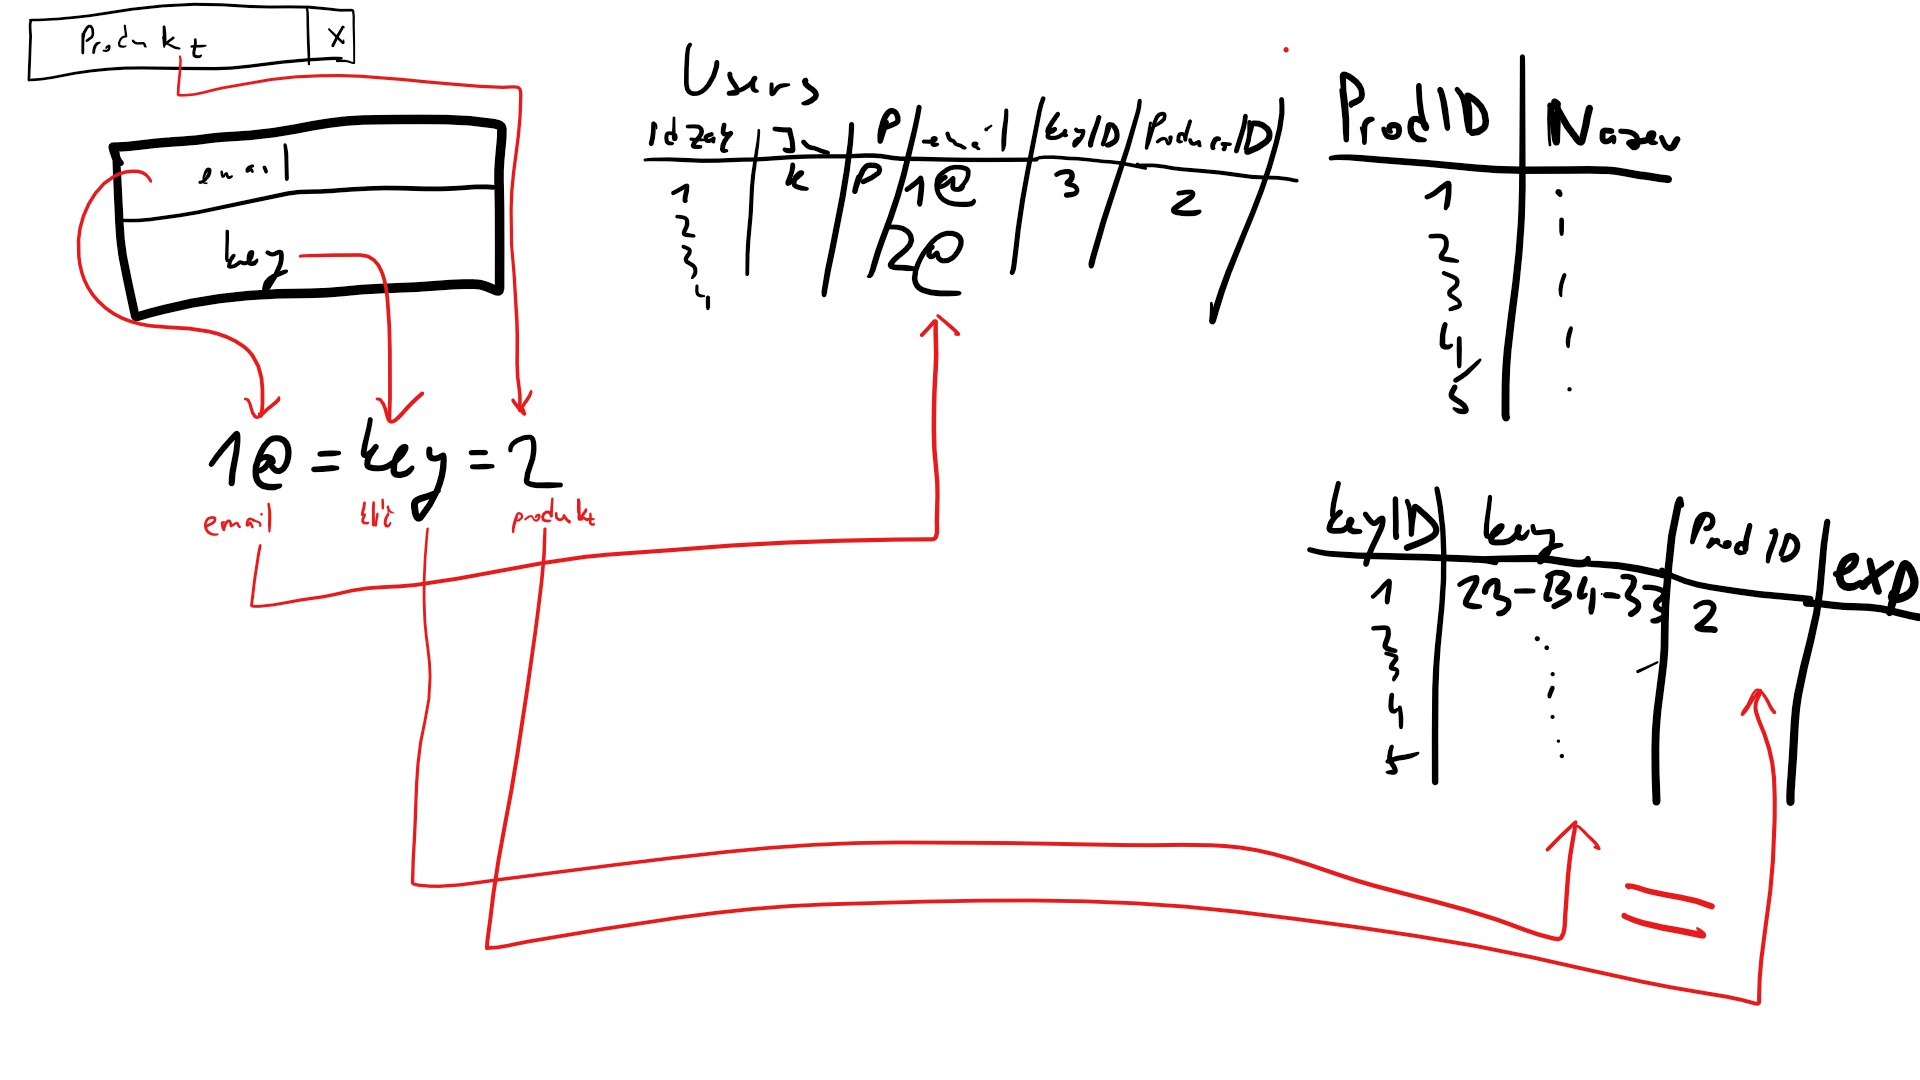 Produkt X
email
key
1@ = key = 2
email klíč produkt
Users
Id zak Jm P email keyID ProductID
1 k P 1@ 3 2
2 2@
3
4
ProdID Nazev
1
2
3
4
5
keyID key ProdID exp
1 23-B4-33 2
2
3
4
5
=